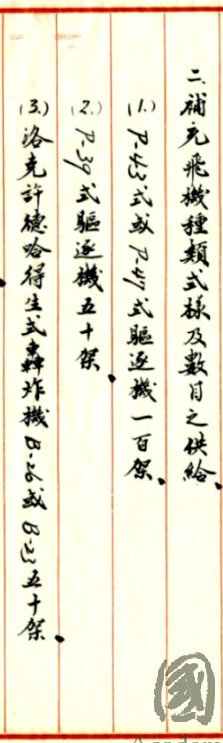 二、補充飛機種類式樣及數目之供給、
(1.) P-43式或P-47式驅逐機一百架、
(2.) P-39式驅逐機五十架、
(3.) 洛克許德哈得生式轟炸機B-26或B-23五十架、
國